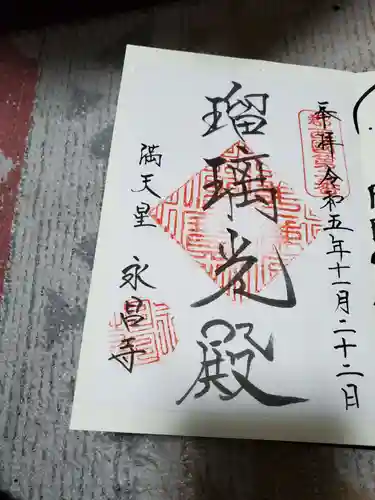 奉拝 令和五年十一月二十二日
瑠璃光殿
満天星
永昌寺